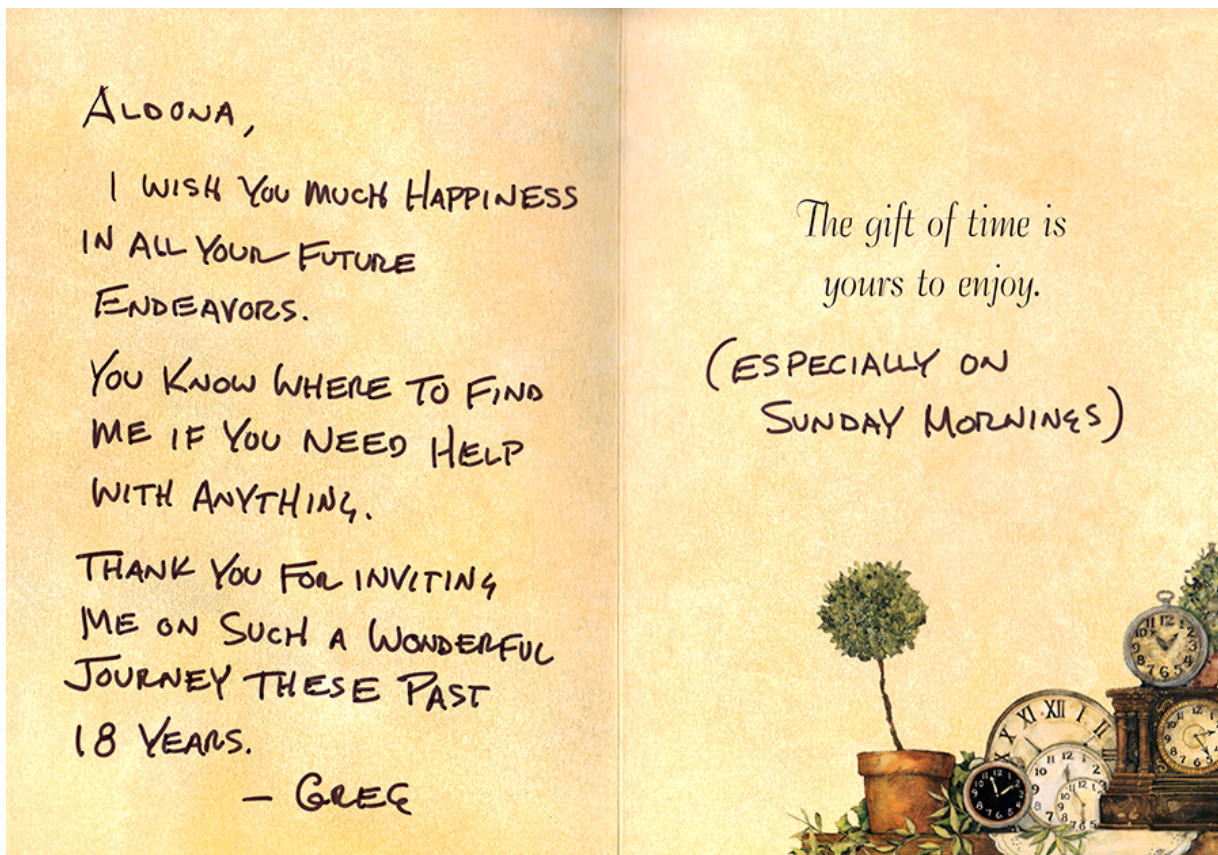 ALDONA,
I WISH YOU MUCH HAPPINESS
IN ALL YOUR FUTURE
ENDEAVORS.
YOU KNOW WHERE TO FIND
ME IF YOU NEED HELP
WITH ANYTHING.
THANK YOU FOR INVITING
ME ON SUCH A WONDERFUL
JOURNEY THESE PAST
18 YEARS.
– GREG
The gift of time is
yours to enjoy.
(ESPECIALLY ON
SUNDAY MORNINGS)